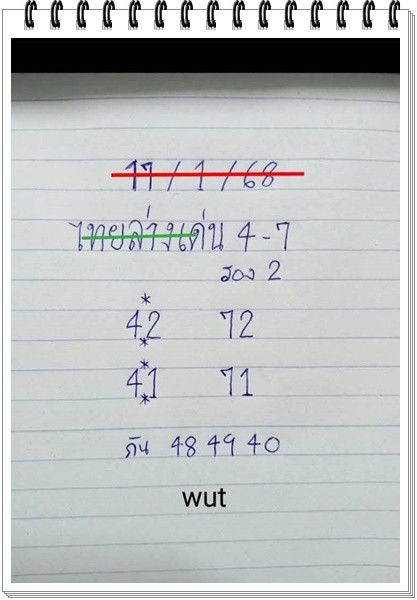 17/1/68
ไทยล่างเด่น 4-7
รอง 2
*
42 72
*
*
41 71
*
กัน 48 49 40
wut